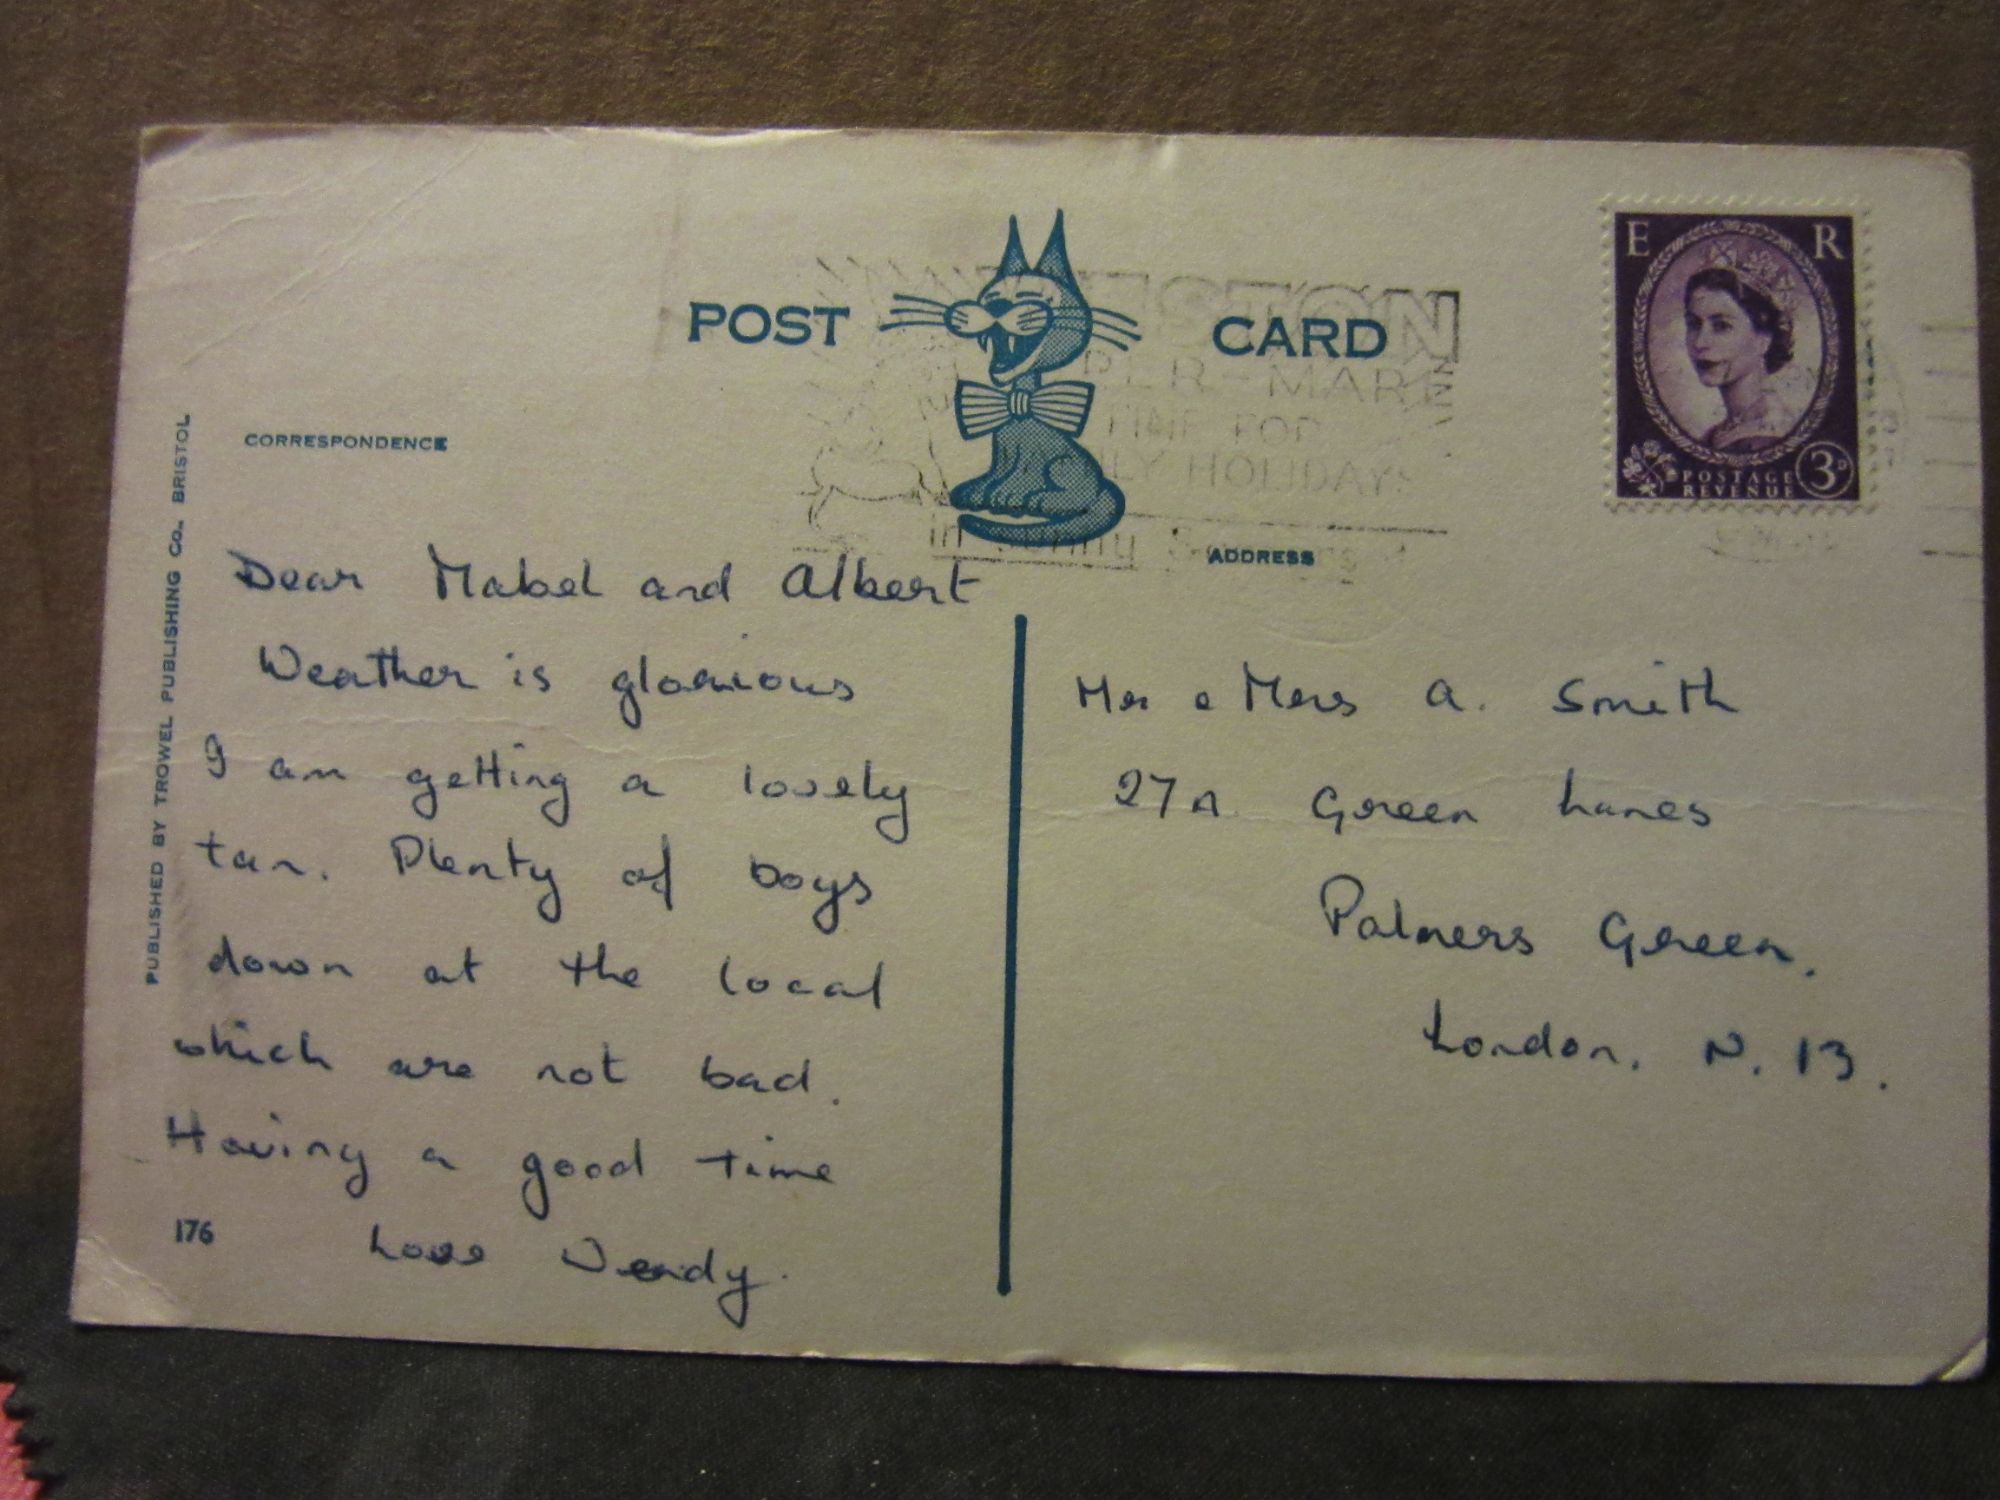 POST CARD
WESTON
PER-MARE
TIME FOR
HOLIDAYS
in
CORRESPONDENCE
ADDRESS
E R
POSTAGE
REVENUE
3D
PUBLISHED BY TROWEL PUBLISHING Co., BRISTOL
Dear Mabel and Albert
Weather is glorious
I am getting a lovely
tan. Plenty of boys
down at the local
which are not bad.
Having a good time
Love Wendy.
176
Mr & Mrs A. Smith
27A Green Lanes
Palmers Green.
London. N. 13.